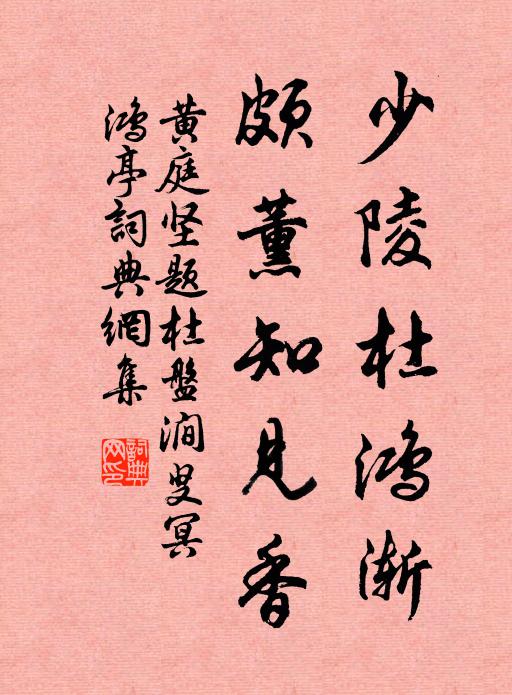 少陵杜鸿渐
颇薰知见香
黄庭坚题杜槃涧叟冥
鸿亭詞典網集
詞典网印